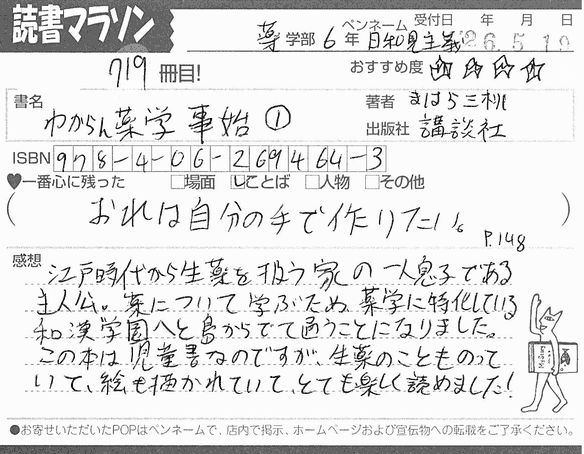 読書マラソン
薬 学部 6 年 ペンネーム 日和見主義 受付日 年 月 日 26.5.10
719 冊目! おすすめ度 ☆☆☆☆
書名 わからん薬学事始 ① 著者 まはら三桃
出版社 講談社
ISBN 978-4-06-269464-3
♥一番心に残った □場面 ☑ことば □人物 □その他
(おれは自分の手で作りたい。 P.148)
感想 江戸時代から生薬を扱う家の一人息子である
主人公。薬について学ぶため、薬学に特化している
和漢学園へと島からでて通うことになりました。
この本は児童書なのですが、生薬のことものって
いて、絵も描かれていて、とても楽しく読めました!
●お寄せいただいたPOPはペンネームで、店内で掲示、ホームページおよび宣伝物への転載をご了承ください。